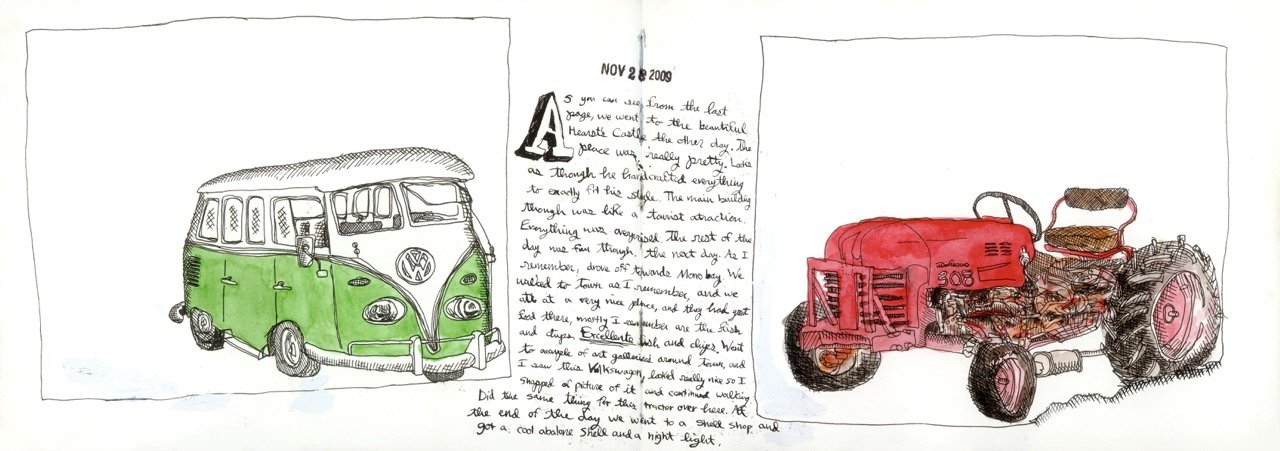 NOV 28 2009
As you can see, from the last
page, we went to the beautiful
Hearst's Castle the other day. The
place was really pretty. Looks
as though he handcrafted everything
to exactly fit his style. The main building
though was like a tourist atraction.
Everything was oversised. The rest of the
day was fun though. The next day. As I
remember, drove off towards Morro bay. We
walked to town as I remember, and we
ate at a very nice place, and they had great
food there, mostly I remember are the fish
and chips. Excellente fish and chips. Went
to a couple of art galleries around town, and
I saw this Volkswagen, looked really nice so I
snapped a picture of it and continued walking.
Did the same thing for this tractor over here. At
the end of the day we went to a shell shop and
got a cool abalone shell and a night light.
VW
308